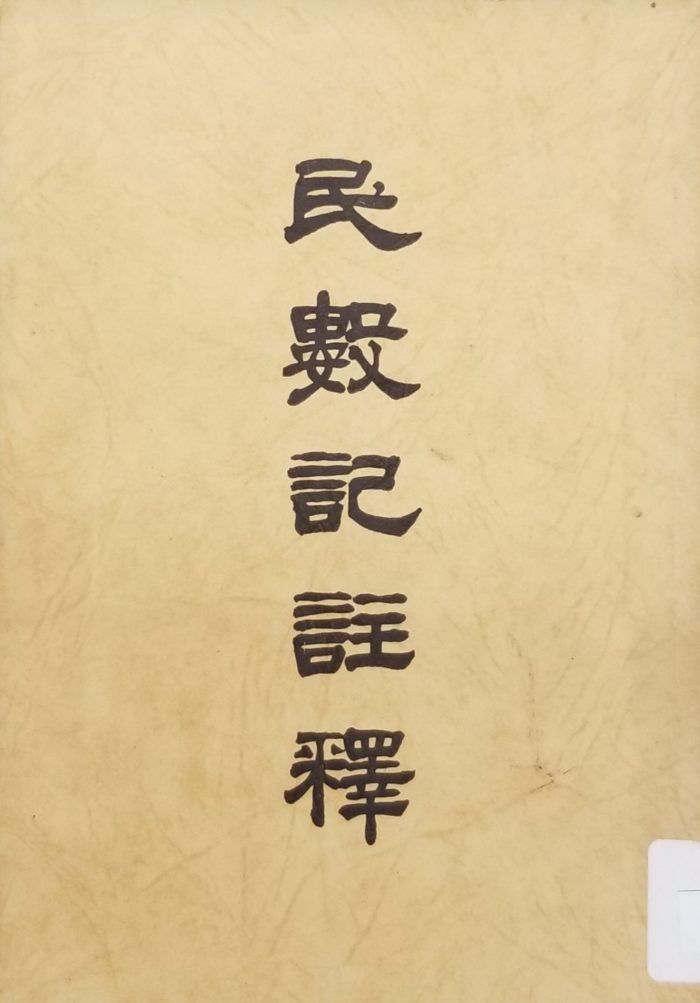 民數記註釋